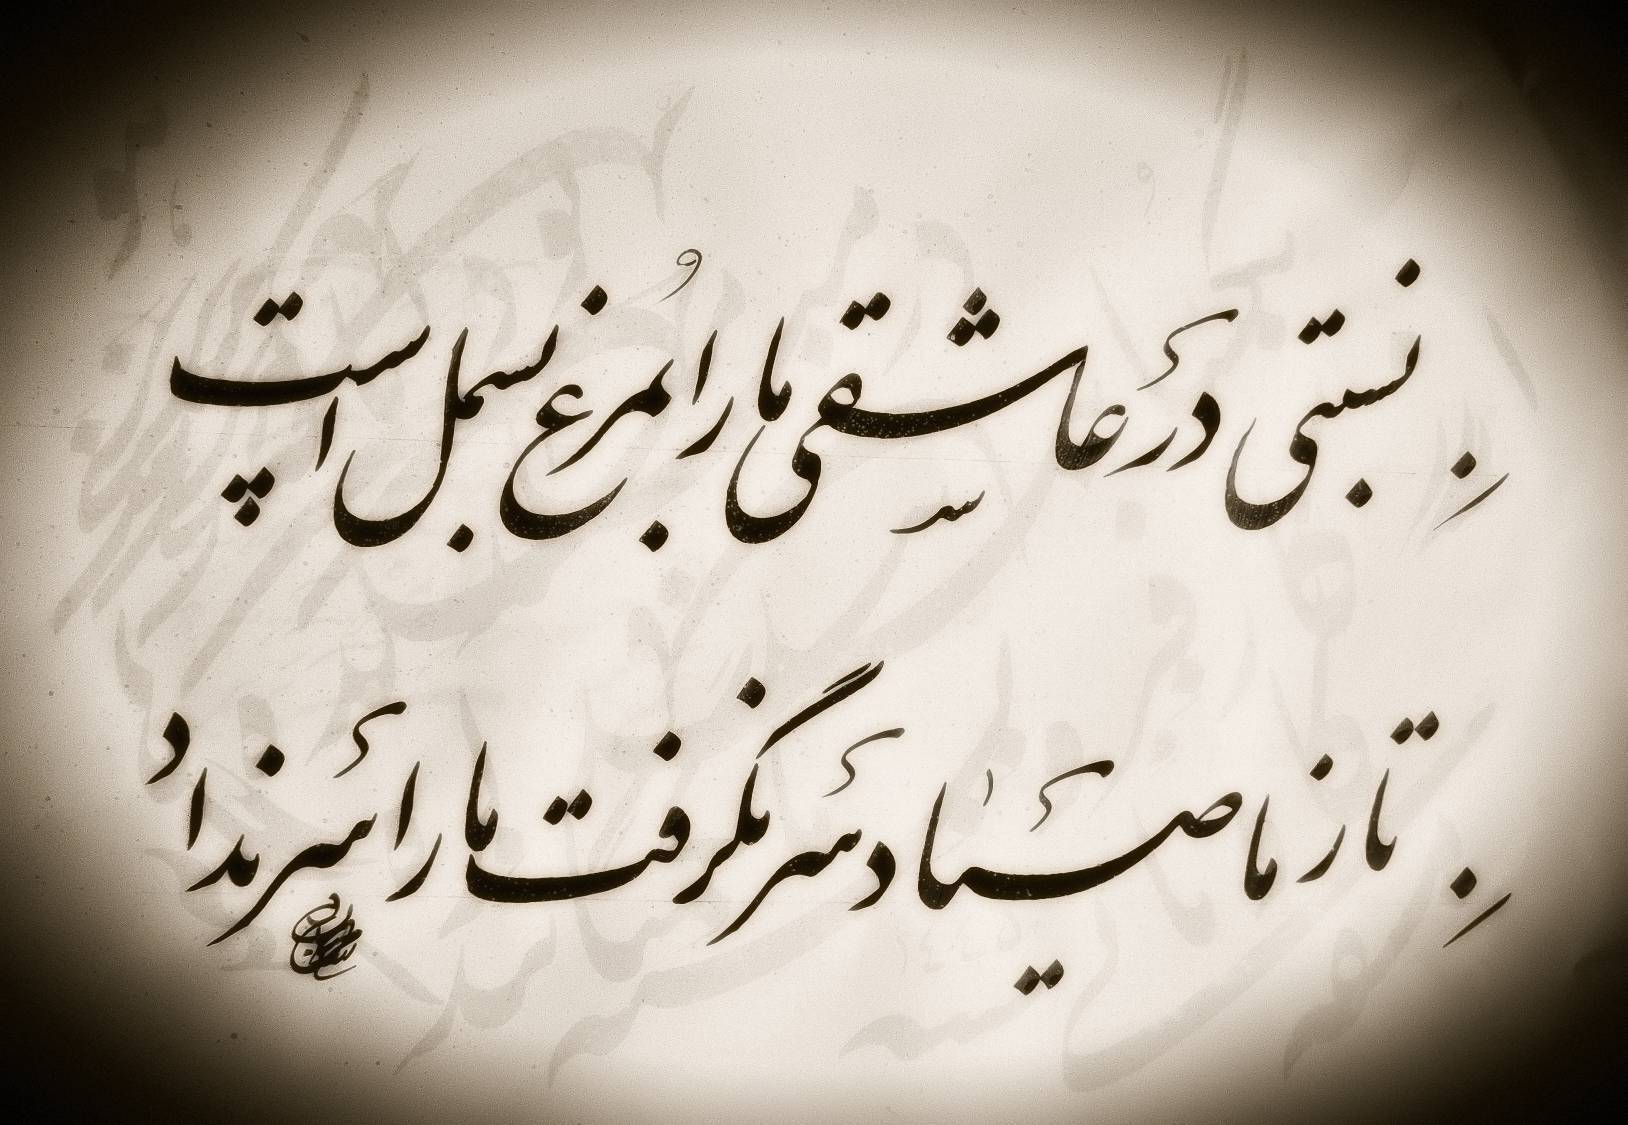 نسبتی در عاشقی ما را بمرغ بسمل است
تا ز ما صیاد سر نگرفت ما را سر نداد